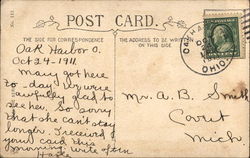 No. 113
POST CARD.
THE SIDE FOR CORRESPONDENCE
THE ADDRESS TO BE WRITTEN ON THIS SIDE
Oak Harbor O.
Oct 24-1911
Mary got here
to-day. We were
awfully glad to
see her. So sorry
that she can't stay
longer. I received
your card this
morning. write often
Mr. A. B. Smith
Covert
Mich
OAK HA
OHIO